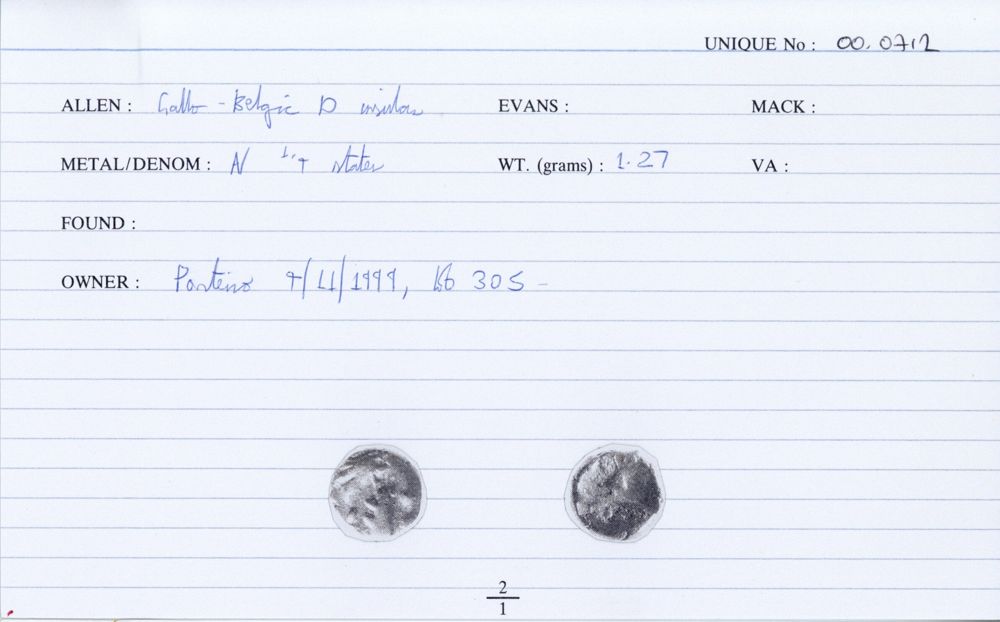 UNIQUE No : 00.0712
ALLEN : Gallo-Belgic D EVANS : MACK :
METAL/DENOM : 1/4 stater WT. (grams) : 1.27 VA :
FOUND :
OWNER : 4/11/1999, 305 -
2
1